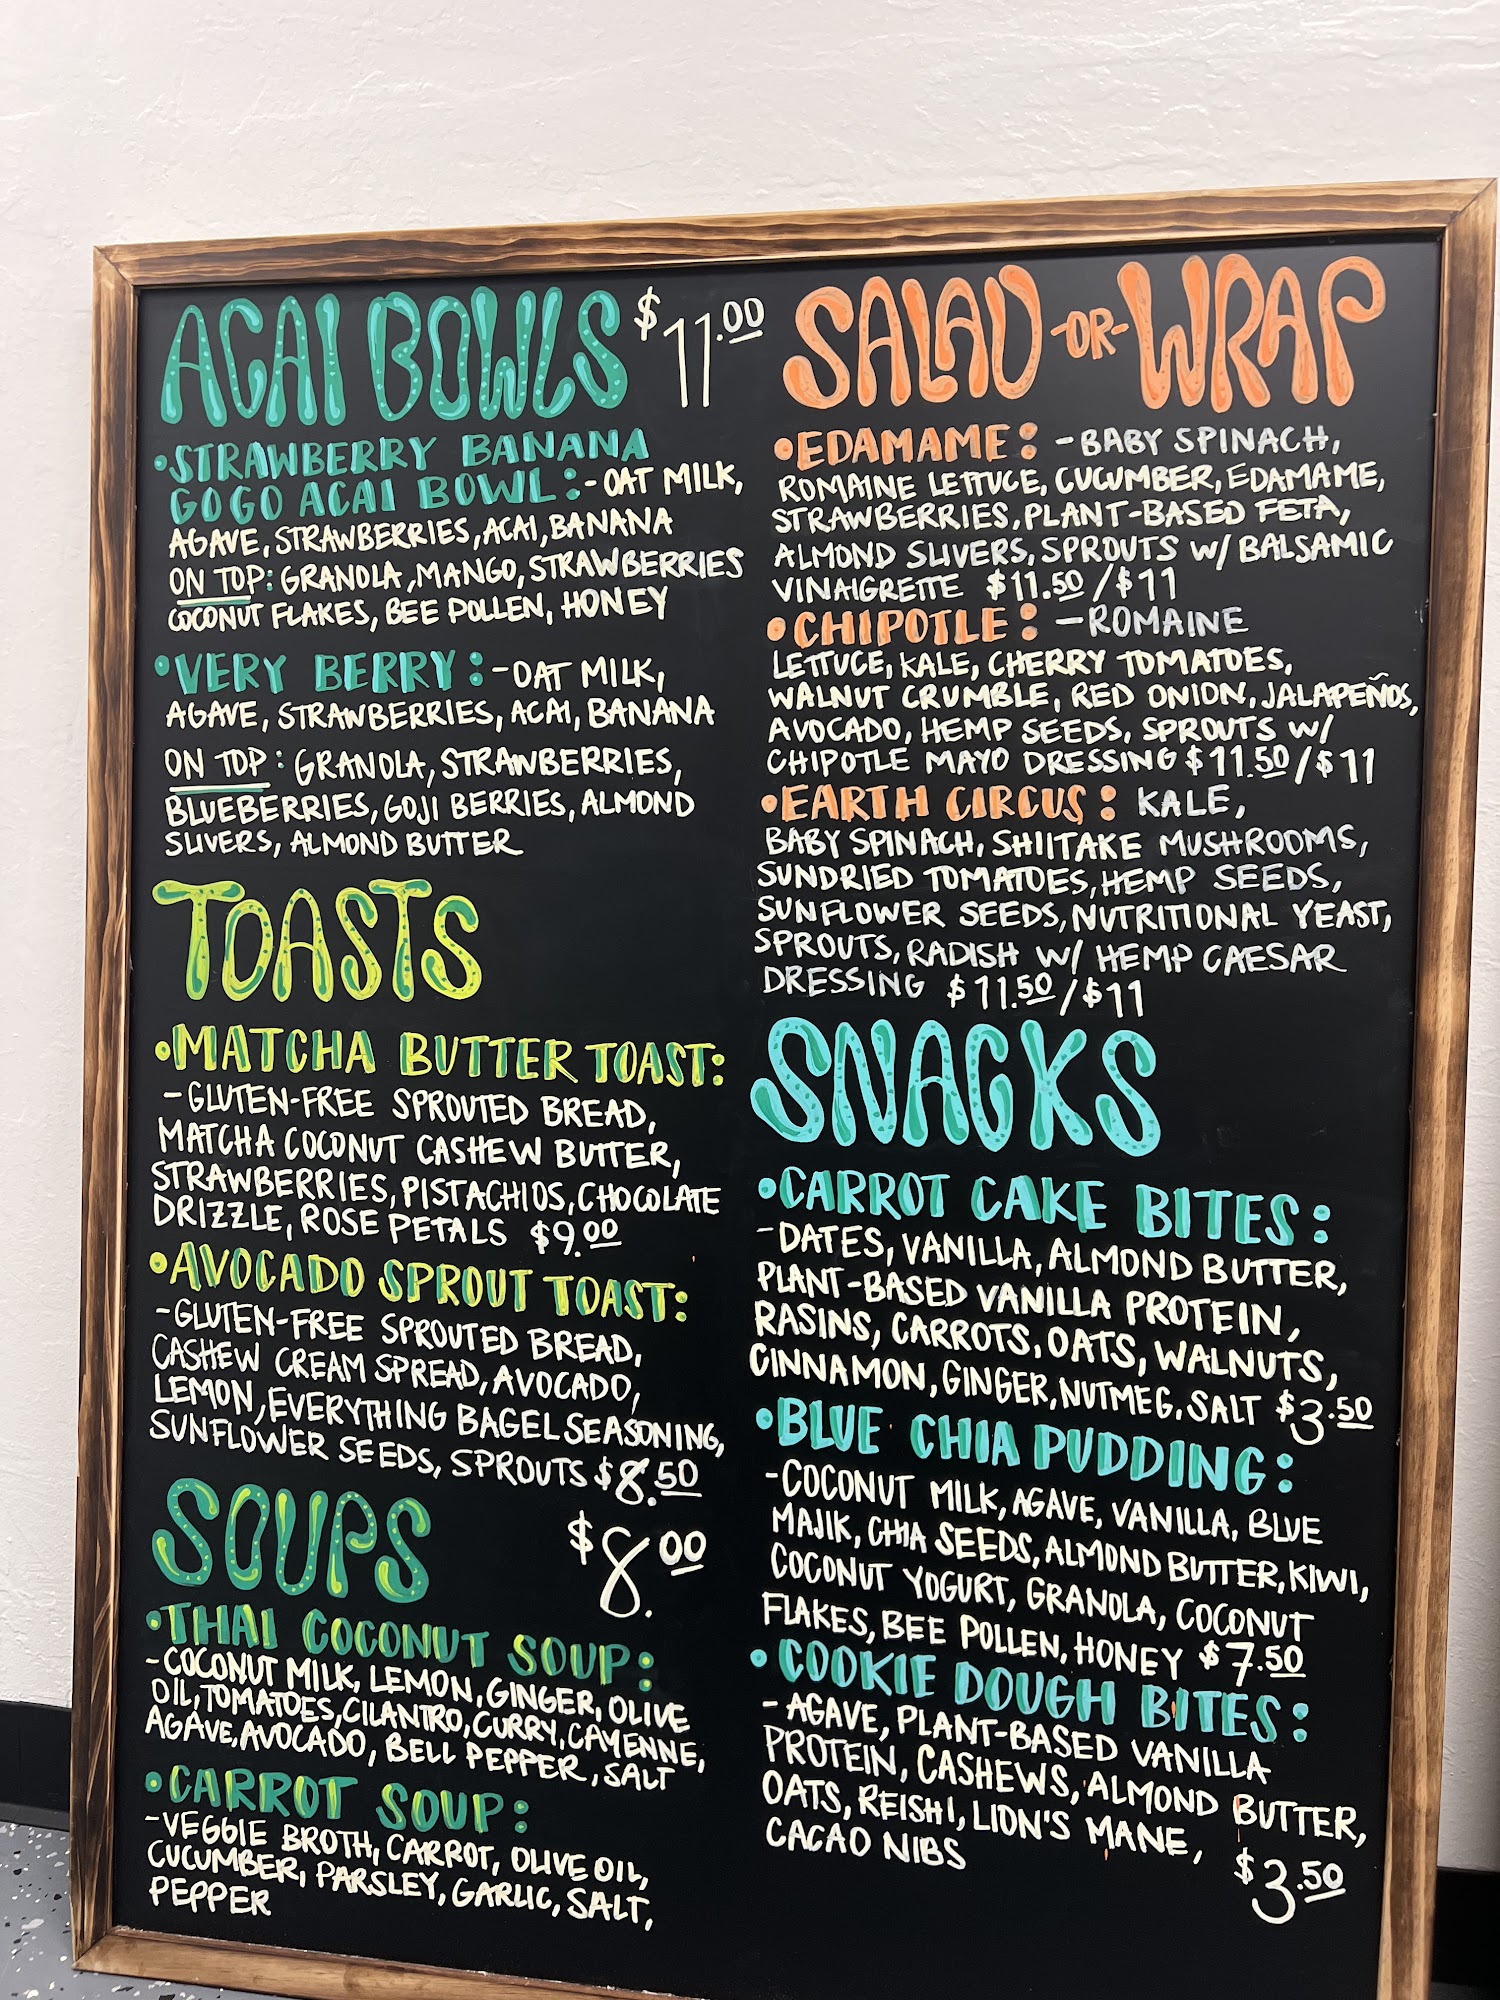 ACAI BOWLS $11.00
•STRAWBERRY BANANA
GOGO ACAI BOWL:-OAT MILK,
AGAVE, STRAWBERRIES, ACAI, BANANA
ON TOP: GRANOLA, MANGO, STRAWBERRIES
COCONUT FLAKES, BEE POLLEN, HONEY
•VERY BERRY:-OAT MILK,
AGAVE, STRAWBERRIES, ACAI, BANANA
ON TOP: GRANOLA, STRAWBERRIES,
BLUEBERRIES, GOJI BERRIES, ALMOND
SLIVERS, ALMOND BUTTER
TOASTS
•MATCHA BUTTER TOAST:
-GLUTEN-FREE SPROUTED BREAD,
MATCHA COCONUT CASHEW BUTTER,
STRAWBERRIES, PISTACHIOS, CHOCOLATE
DRIZZLE, ROSE PETALS $9.00
•AVOCADO SPROUT TOAST:
-GLUTEN-FREE SPROUTED BREAD,
CASHEW CREAM SPREAD, AVOCADO,
LEMON, EVERYTHING BAGEL SEASONING,
SUNFLOWER SEEDS, SPROUTS $8.50
SOUPS $8.00
•THAI COCONUT SOUP:
-COCONUT MILK, LEMON, GINGER, OLIVE
OIL, TOMATOES, CILANTRO, CURRY, CAYENNE,
AGAVE, AVOCADO, BELL PEPPER, SALT
•CARROT SOUP:
-VEGGIE BROTH, CARROT, OLIVE OIL,
CUCUMBER, PARSLEY, GARLIC, SALT,
PEPPER
SALAD -OR- WRAP
•EDAMAME: -BABY SPINACH,
ROMAINE LETTUCE, CUCUMBER, EDAMAME,
STRAWBERRIES, PLANT-BASED FETA,
ALMOND SLIVERS, SPROUTS W/ BALSAMIC
VINAIGRETTE $11.50/$11
•CHIPOTLE: -ROMAINE
LETTUCE, KALE, CHERRY TOMATOES,
WALNUT CRUMBLE, RED ONION, JALAPEÑOS,
AVOCADO, HEMP SEEDS, SPROUTS W/
CHIPOTLE MAYO DRESSING $11.50/$11
•EARTH CIRCUS: KALE,
BABY SPINACH, SHIITAKE MUSHROOMS,
SUNDRIED TOMATOES, HEMP SEEDS,
SUNFLOWER SEEDS, NUTRITIONAL YEAST,
SPROUTS, RADISH W/ HEMP CAESAR
DRESSING $11.50/$11
SNACKS
•CARROT CAKE BITES:
-DATES, VANILLA, ALMOND BUTTER,
PLANT-BASED VANILLA PROTEIN,
RASINS, CARROTS, OATS, WALNUTS,
CINNAMON, GINGER, NUTMEG, SALT $3.50
•BLUE CHIA PUDDING:
-COCONUT MILK, AGAVE, VANILLA, BLUE
MAJIK, CHIA SEEDS, ALMOND BUTTER, KIWI,
COCONUT YOGURT, GRANOLA, COCONUT
FLAKES, BEE POLLEN, HONEY $7.50
•COOKIE DOUGH BITES:
-AGAVE, PLANT-BASED VANILLA
PROTEIN, CASHEWS, ALMOND BUTTER,
OATS, REISHI, LION'S MANE,
CACAO NIBS $3.50